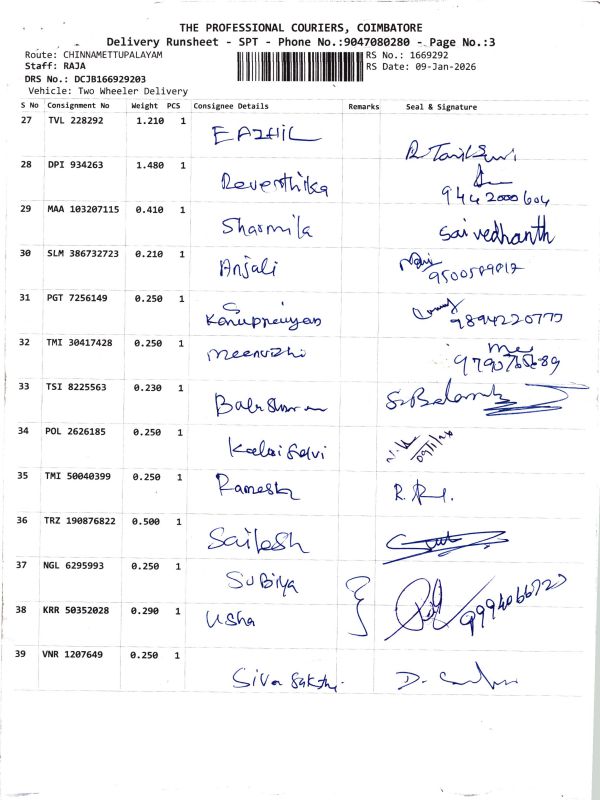 THE PROFESSIONAL COURIERS, COIMBATORE
Delivery Runsheet - SPT - Phone No.:9047080280 - Page No.:3
Route: CHINNAMETTUPALAYAM RS No.: 1669292
Staff: RAJA RS Date: 09-Jan-2026
DRS No.: DCJB166929203
Vehicle: Two Wheeler Delivery
S No Consignment No Weight PCS Consignee Details Remarks Seal & Signature
27 TVL 228292 1.210 1 EAZHIL
28 DPI 934263 1.480 1 Reverthika
9442000604
29 MAA 103207115 0.410 1 Sharmila Sai vedhanth
30 SLM 386732723 0.210 1 Anjali
31 PGT 7256149 0.250 1
32 TMI 30417428 0.250 1
33 TSI 8225563 0.230 1
34 POL 2626185 0.250 1 Kalai Selvi
09/1/26
35 TMI 50040399 0.250 1 Ramesh
36 TRZ 190876822 0.500 1 Sailesh
37 NGL 6295993 0.250 1 SUBiya
38 KRR 50352028 0.290 1 Usha
39 VNR 1207649 0.250 1 Siva Sakthi